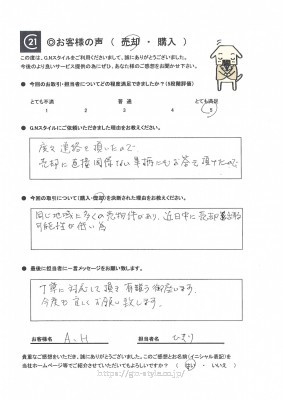 21 ◎お客様の声（ 売却 ・ 購入 ）
この度は、G.Nスタイルをご利用くださいまして、誠にありがとうございました。
今後のより良いサービス提供の為にぜひ、あなた様のご感想をお聞かせ下さい。
● 今回のお取引・担当者についてどの程度満足できましたか？(5段階評価)
とても不満 普 通 とても満足
1 2 3 4 5
● G.Nスタイルにご依頼いただきました理由をお教えください。
度々連絡を頂いたので
売却に直接関係ない単語にもお答え頂けたので
● 今回の取引について(購入・売却)を決断された理由をお教えください。
同じ地域に多くの売物件があり、近日中に売却
可能性が低い為
● 最後に担当者に一言メッセージをお願い致します。
丁寧に対応して頂き有難う御座います。
今後も宜しくお願い致します。
お客様名 A.H 担当者名
貴重なご感想をいただき、誠にありがとうございました。このご感想とお名前(イニシャル表記)を
当社ホームページ等でご紹介させていただいてもよろしいですか？ （ はい ・ いいえ ）
https://gn-style.co.jp